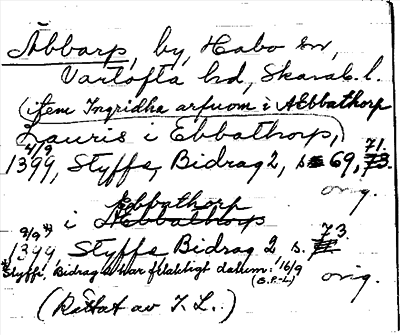 Åbbarp, by, Habo sn,
Vartofta hd, Skarab. l.
(item Ingridha arfuom i AEbbathorp
Lauris i Ebbathorp,)
4/9 71.
1399, Styffe, Bidrag 2, s 69, 73.
orig.
Ebbathorp
i AEbbathorp
9/9 *) 73.
1399, Styffe, Bidrag 2 s.
*Styffe, Bidrag 2 har felaktigt datum: 16/9 orig.
(S.P-L)
(Rättat av I. L.)